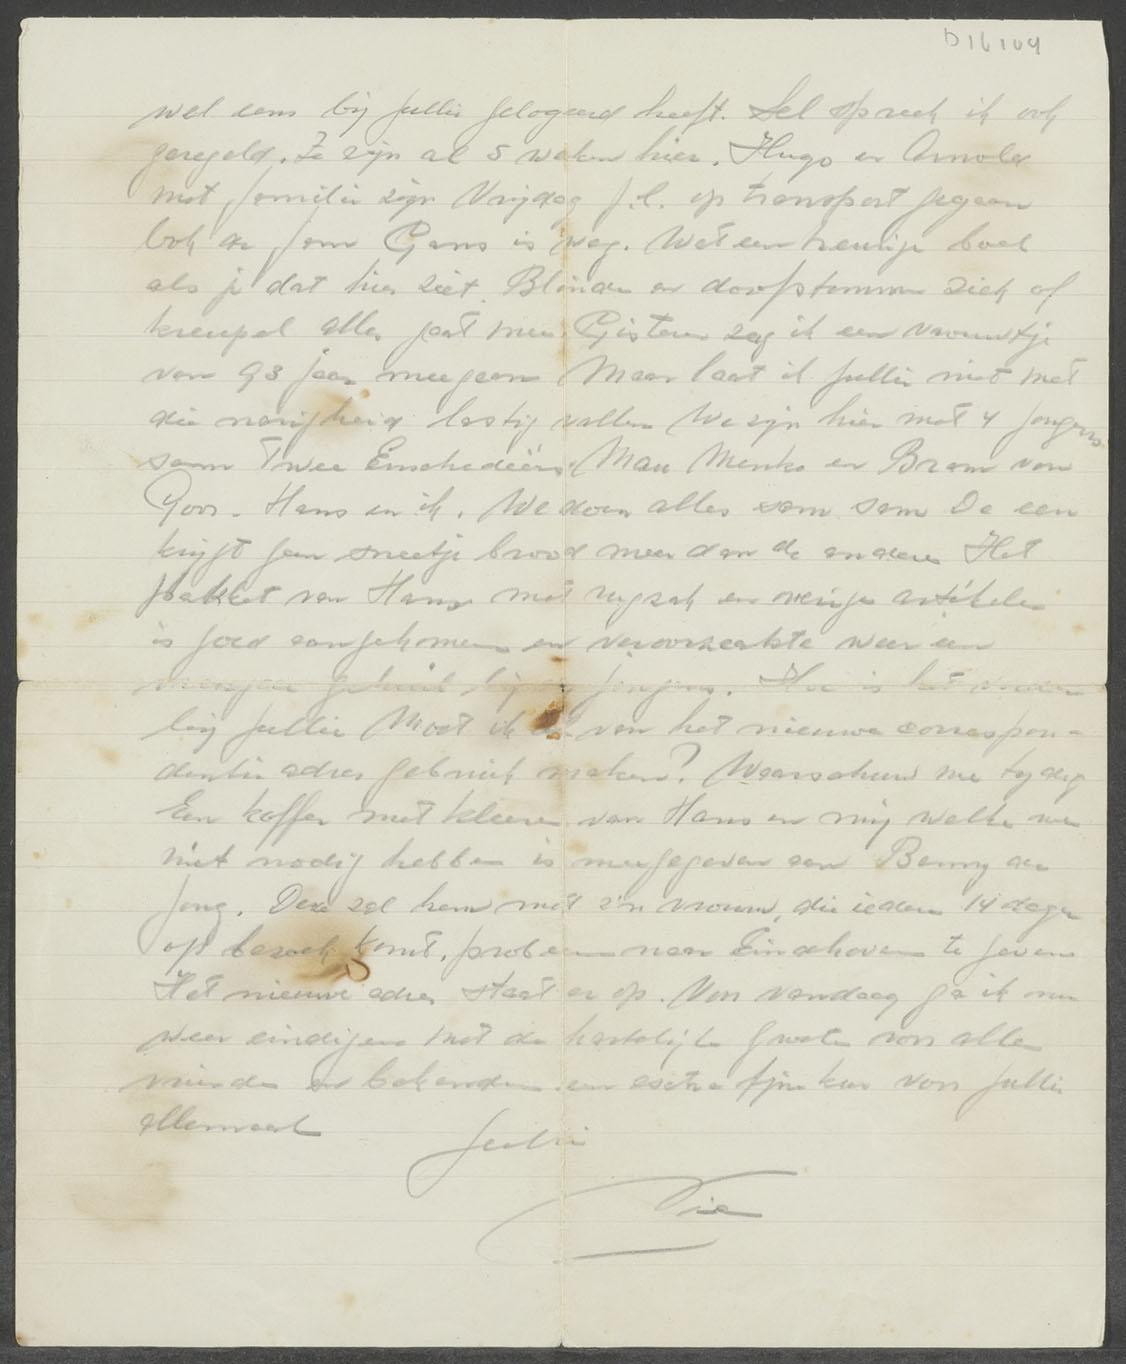 D16104
wel eens bij jullie gelogeerd heeft. Sel spreek ik ook
geregeld. Ze zijn al 5 weken hier. Hugo en Arnold
met familie zijn Vrijdag j.l. op transport gegaan
Ook de fam Gans is weg. Wat een treurige boel
als je dat hier ziet. Blinden en doofstommen ziek of
kreupel alles gaat mee. Gisteren zag ik een vrouwtje
van 93 jaar meegaan Maar laat ik jullie niet met
die narigheid lastig vallen We zijn hier met 4 jongens
saam Twee Enschedeërs. Man Menko en Bram van
Goor - Hans en ik. We doen alles saam De een
krijgt geen sneetje brood meer dan de andere Het
pakket van Hans met rugzak en overige artikelen
is goed aangekomen en veroorzaakte weer een
gehuil bij de jongens. Hoe is het
bij jullie Moet ik van het nieuwe correspon-
dentie adres gebruik maken? Waarschuw me tijdig
Een koffer met kleeren van Hans en mij welke we
niet nodig hebben is meegegeven aan Benny de
Jong. Deze zal hem met z'n vrouw, die iedere 14 dagen
op bezoek komt, probeeren naar Eindhoven te geven
Het nieuwe adres staat er op. Van vandaag ga ik nu
weer eindigen met de hartelijke groeten van alle
vrienden en bekenden en extra fijne kus van jullie
allemaal
Jullie